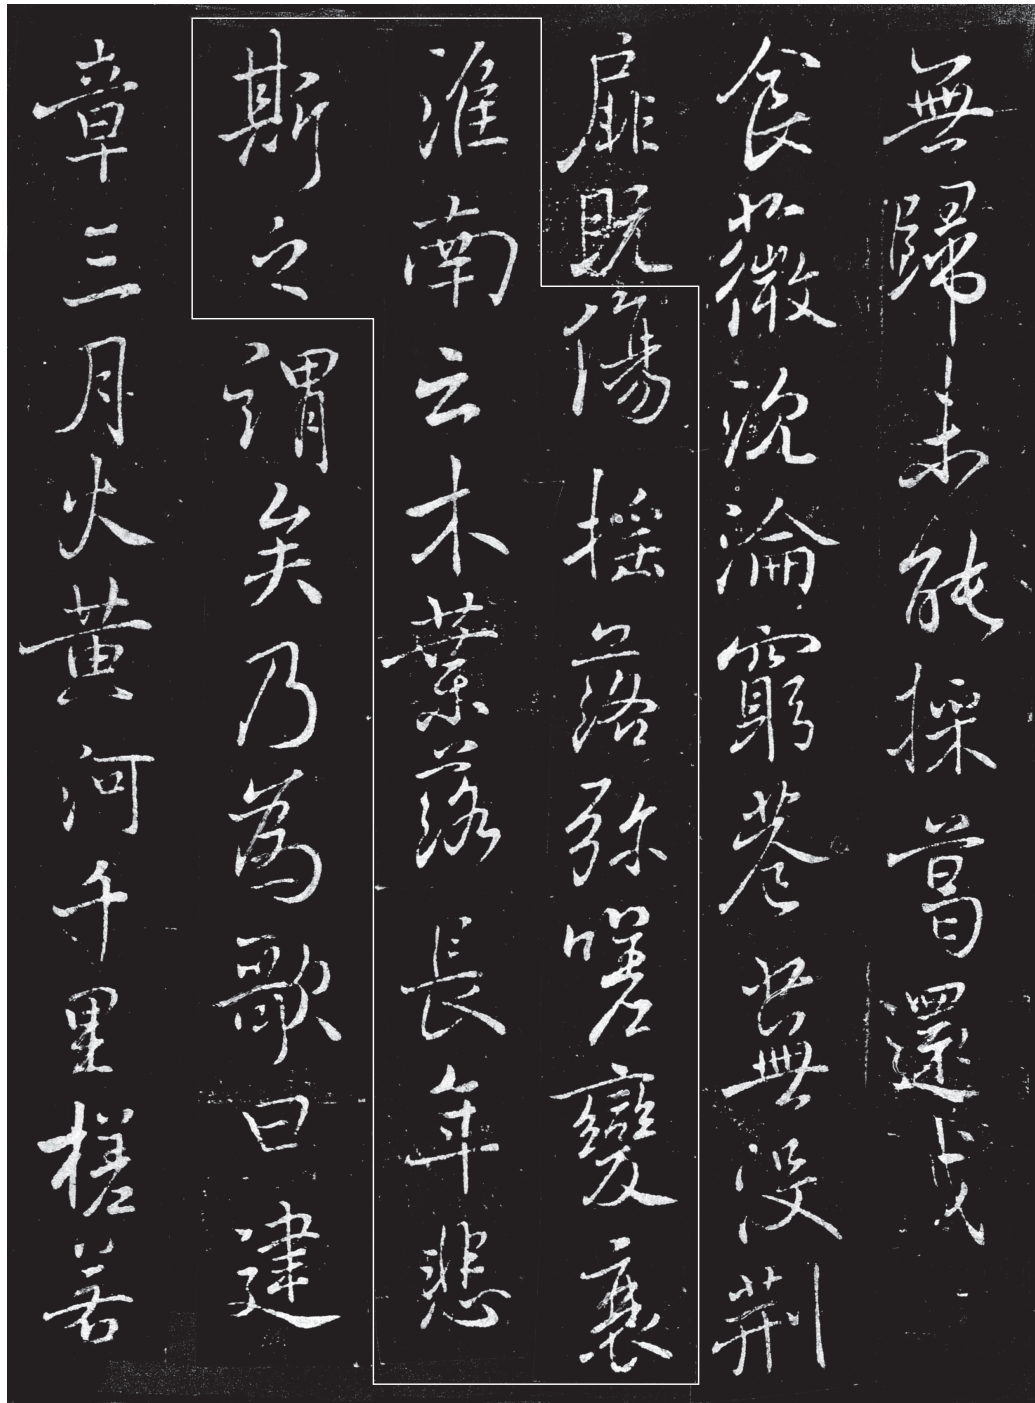 無歸未能採葛還成
食薇沈淪窮巷蕪沒荊
扉既傷搖落弥嗟變衰
淮南云木葉落長年悲
斯之謂矣乃為歌曰建
章三月火黃河千里槎若